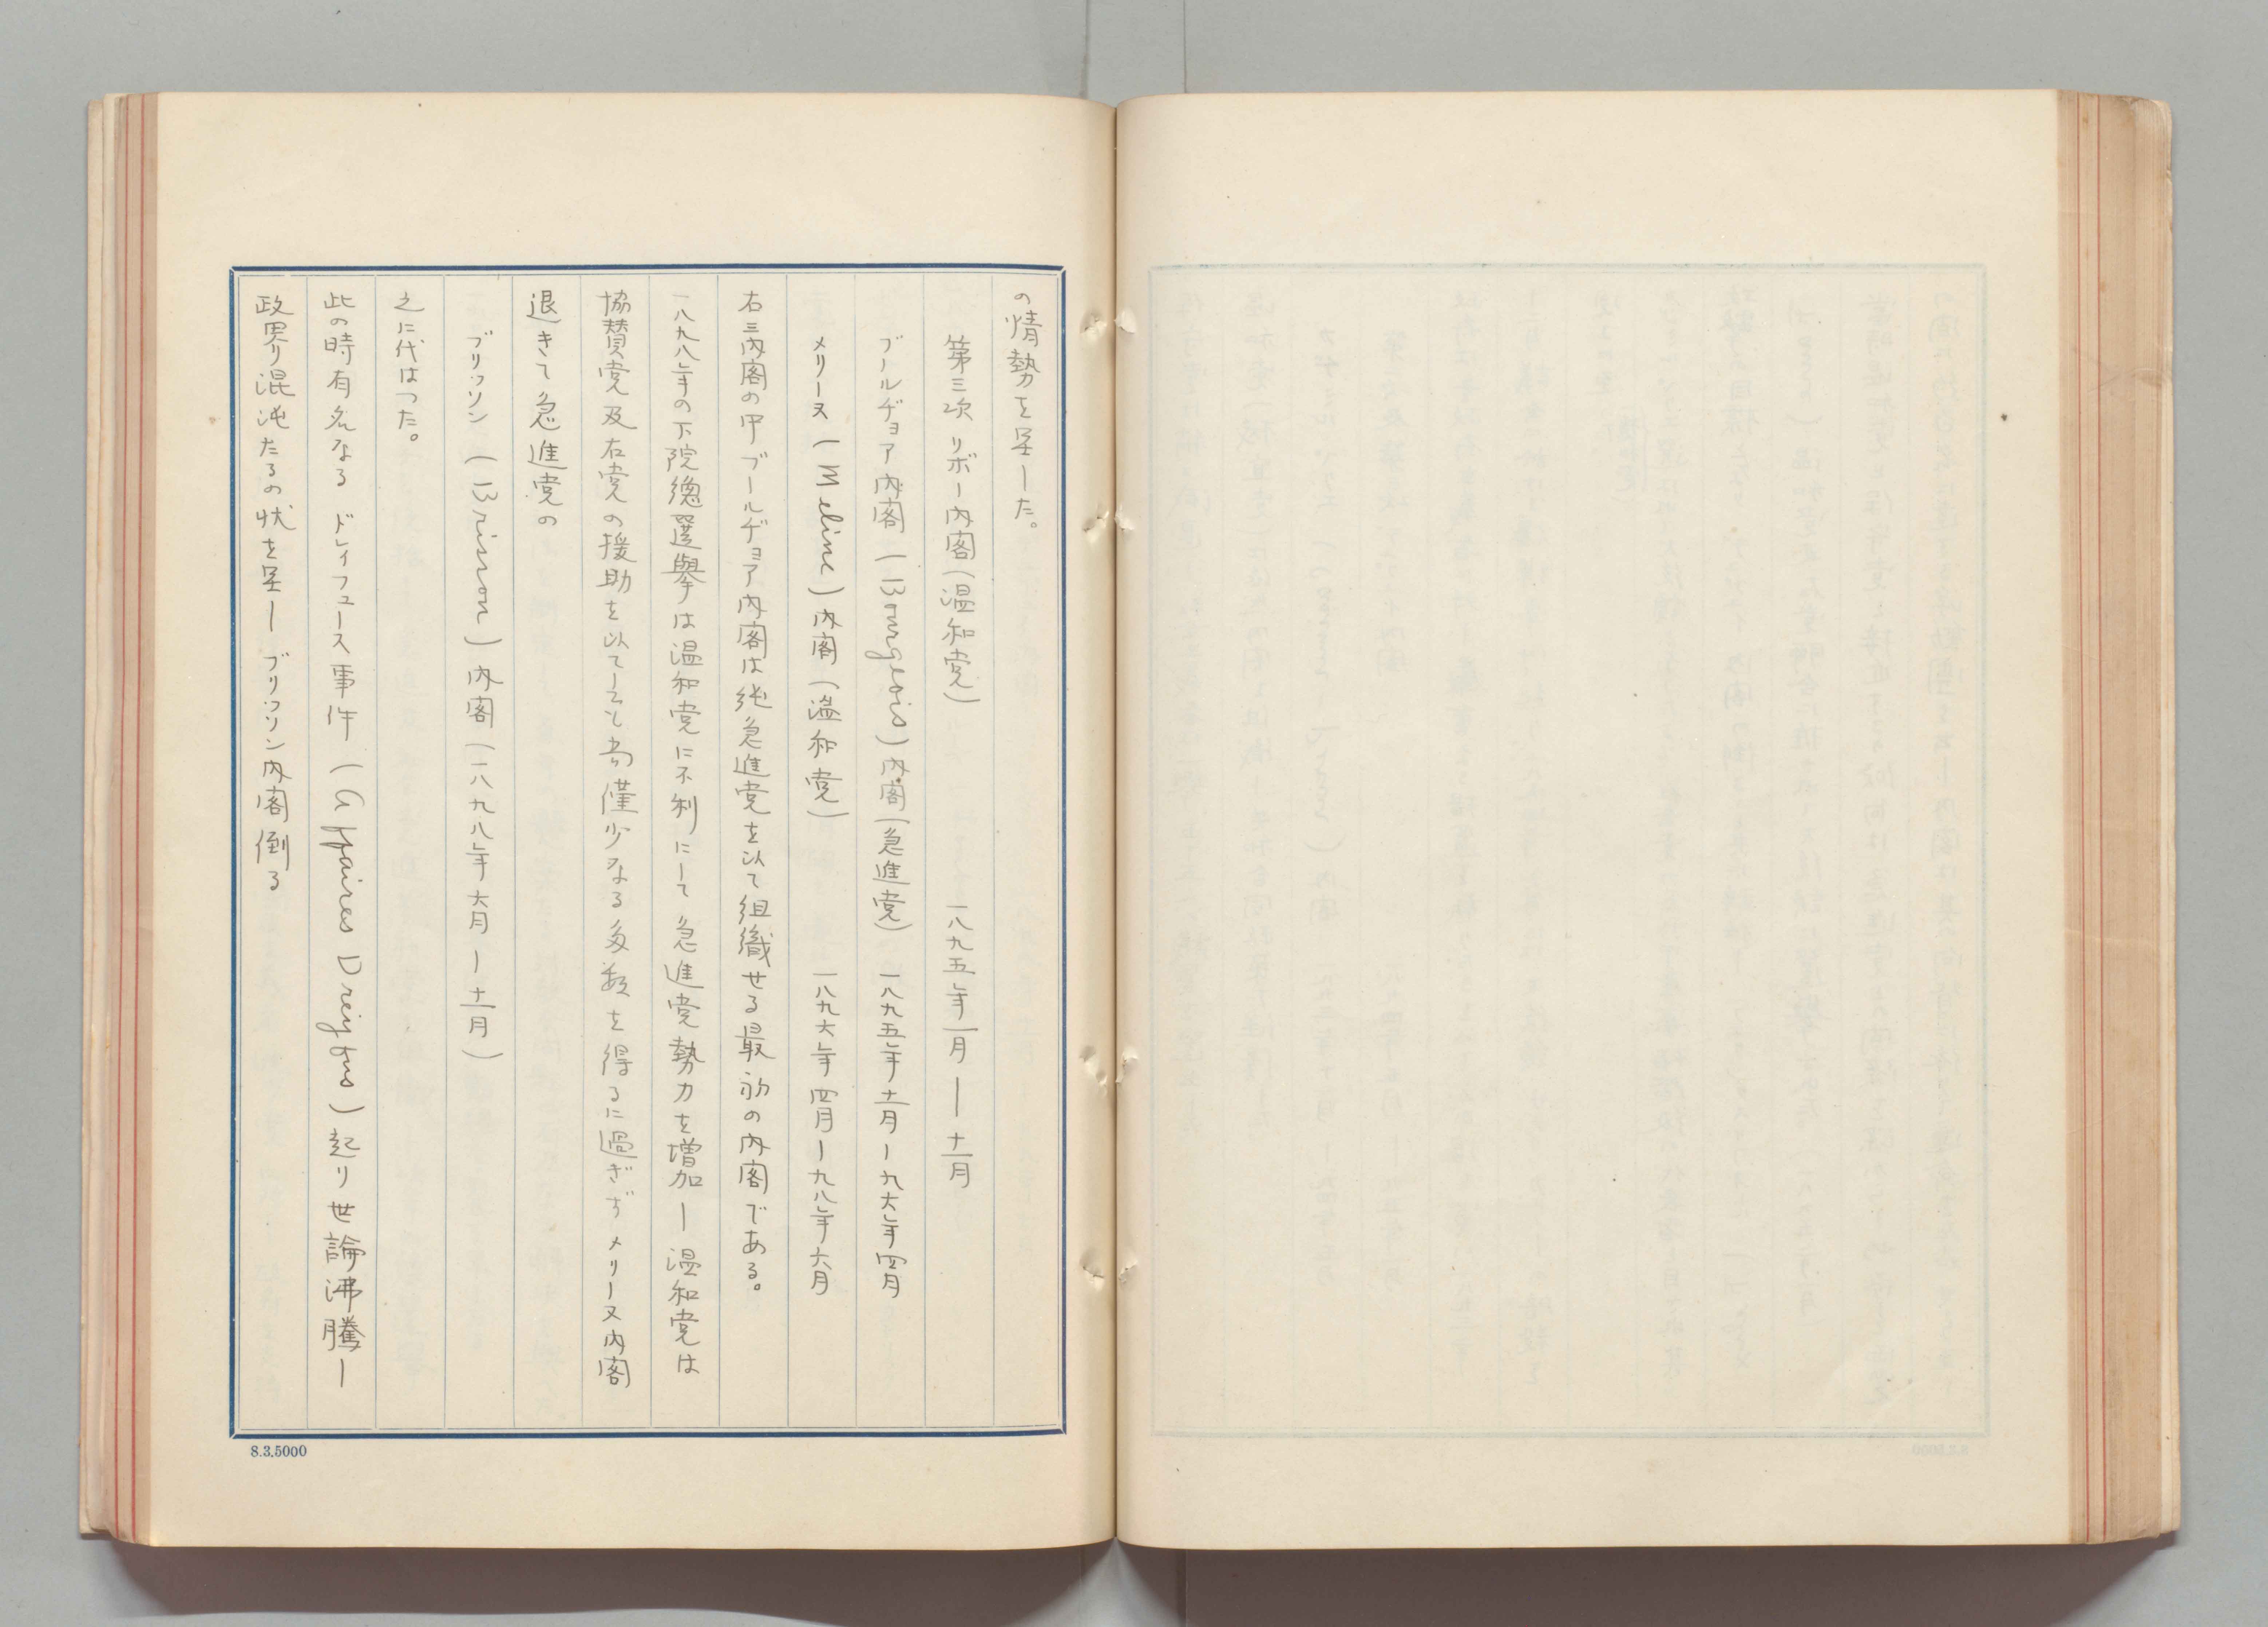 の情勢を呈した。
第三次リボー内閣(温和党) 一八九五年一月—十一月
ブールヂョア内閣(Bourgeois)内閣(急進党) 一八九五年十一月—九六年四月
メリーヌ(Meline)内閣(温和党) 一八九六年四月—九八年六月
右三内閣の中ブールヂョア内閣は純急進党を以て組織せる最初の内閣である。
一八九八年の下院総選挙は温和党に不利にして急進党勢力を増加し温和党は
協賛党及右党の援助を以てしても尚僅少なる多数を得るに過ぎずメリーヌ内閣
退きて急進党の
ブリッソン(Brisson)内閣(一八九八年六月—十一月)
之に代はつた。
此の時有名なるドレイフュース事件(Affaires Dreyfus)起り世論沸騰し
政界混沌たるの状を呈しブリッソン内閣倒る
8.3.5000